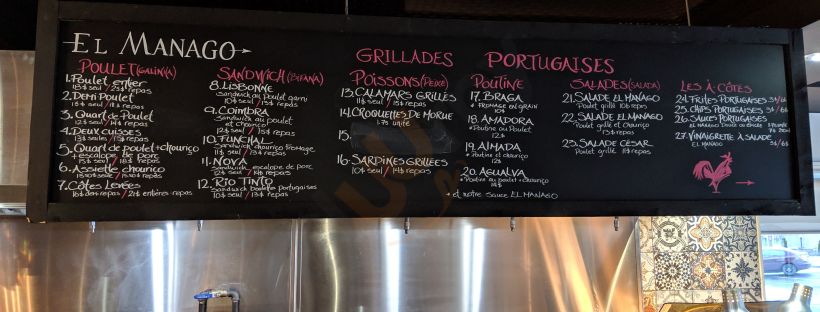 EL MANAGO
GRILLADES PORTUGAISES
POULET (GALINHA)
1. Poulet entier
18$ seul / 25$ repas
2. Demi Poulet
14$ seul / 18$ repas
3. Quart de Poulet
12$ seul / 14$ repas
4. Deux cuisses
13$ seules / 15$ repas
5. Quart de poulet + chouriço
+ escalope de porc
15$ seul / 18$ repas
6. Assiette chouriço
repas
7. Côtes Levées
16$ dos repas / 21$ entières repas
SANDWICH (BIFANA)
8. LISBONNE
Sandwich au Poulet garni
10$ seul / 15$ repas
9. COIMBRA
Sandwich au poulet
et chouriço
12$ seul / repas
10. FUNCHAL
Sandwich chouriço fromage
11$ seul / 15$ repas
11. NOVA
Sandwich escalope de porc
12$ seul / 15$ repas
12. RIO TINTO
Sandwich boulette portugaises
10$ seul / 13$ repas
POISSONS (PEIXE)
13. CALAMARS GRILLÉS
11$ seul / 15$ repas
14. CROQUETTES DE MORUE
1.75 unité
15.
16. SARDINES GRILLÉES
10$ seul / 14$ repas
POUTINE
17. BRAGA
+ FROMAGE en GRAIN
10$
18. AMADORA
+ Poutine au Poulet
12$
19. ALMADA
+ Poutine au chouriço
12$
20. AGUALVA
+ Poutine au poulet + chouriço
14$
+ et notre Sauce EL MANAGO
SALADES (SALADA)
21. SALADE EL MANAGO
Poulet grillé 10$ repas
22. SALADE EL MANAGO
Poulet grillé et chouriço
13$ repas
23. SALADE CÉSAR
Poulet grillé 11$ repas
LES À-CÔTÉS
24. FRITES PORTUGAISES 3$ / 6$
25. CHIPS PORTUGAISES 3$ / 6$
26. SAUCES PORTUGAISES
EL MANAGO DOUCE OU ÉPICÉE
27. VINAIGRETTE À SALADE
EL MANAGO 3$ / 6$